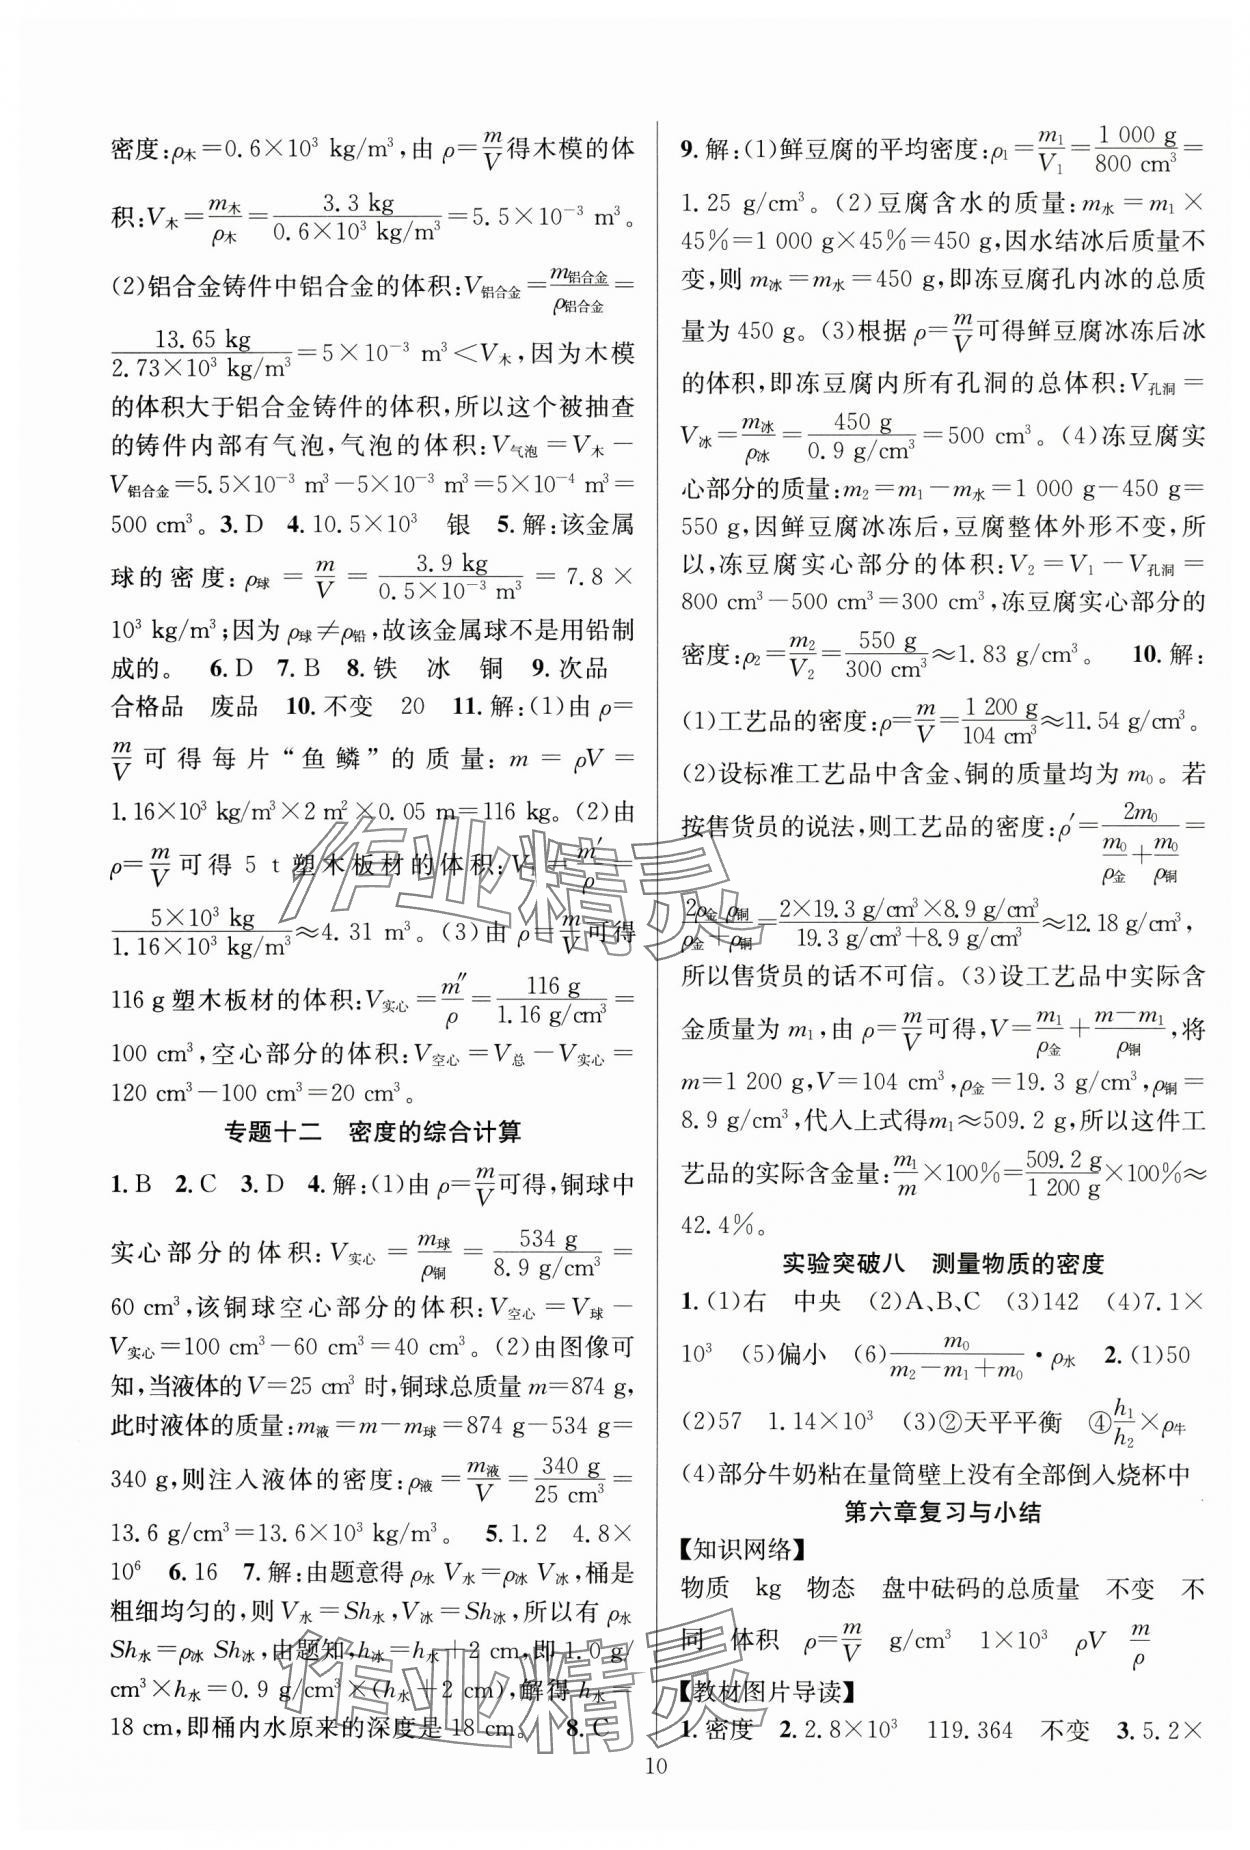 密度:ρ木=0.6×10³ kg/m³,由 ρ=m/V得木模的体
积:V木=m木/ρ木=3.3 kg/0.6×10³ kg/m³=5.5×10⁻³ m³。
(2)铝合金铸件中铝合金的体积:V铝合金=m铝合金/ρ铝合金=
13.65 kg/2.73×10³ kg/m³=5×10⁻³ m³<V木,因为木模
的体积大于铝合金铸件的体积,所以这个被抽查
的铸件内部有气泡,气泡的体积:V气泡=V木-
V铝合金=5.5×10⁻³ m³-5×10⁻³ m³=5×10⁻⁴ m³=
500 cm³。 3.D 4.10.5×10³ 银 5.解:该金属
球的密度:ρ球=m/V=3.9 kg/0.5×10⁻³ m³=7.8×
10³ kg/m³;因为 ρ球≠ρ铅,故该金属球不是用铅制
成的。 6.D 7.B 8.铁 冰 铜 9.次品
合格品 废品 10.不变 20 11.解:(1)由 ρ=
m/V可得每片“鱼鳞”的质量:m=ρV=
1.16×10³ kg/m³×2 m²×0.05 m=116 kg。(2)由
ρ=m/V可得 5 t 塑木板材的体积:V'=m′/ρ=
5×10³ kg/1.16×10³ kg/m³≈4.31 m³。(3)由 ρ=m/V可得
116 g塑木板材的体积:V实心=m″/ρ=116 g/1.16 g/cm³=
100 cm³,空心部分的体积:V空心=V总-V实心=
120 cm³-100 cm³=20 cm³。
专题十二 密度的综合计算
1.B 2.C 3.D 4.解:(1)由 ρ=m/V可得,铜球中
实心部分的体积:V实心=m球/ρ铜=534 g/8.9 g/cm³=
60 cm³,该铜球空心部分的体积:V空心=V球-
V实心=100 cm³-60 cm³=40 cm³。(2)由图像可
知,当液体的V=25 cm³时,铜球总质量 m=874 g,
此时液体的质量:m液=m-m球=874 g-534 g=
340 g,则注入液体的密度:ρ液=m液/V=340 g/25 cm³=
13.6 g/cm³=13.6×10³ kg/m³。 5.1.2 4.8×
10⁶ 6.16 7.解:由题意得 ρ水 V水=ρ冰 V冰,桶是
粗细均匀的,则 V水=Sh水,V冰=Sh冰,所以有 ρ水
Sh水=ρ冰 Sh冰,由题知,h冰=h水+2 cm,即 1.0 g/
cm³×h水=0.9 g/cm³×(h水+2 cm),解得 h水=
18 cm,即桶内水原来的深度是 18 cm。 8.C
9.解:(1)鲜豆腐的平均密度:ρ₁=m₁/V₁=1 000 g/800 cm³=
1.25 g/cm³。(2)豆腐含水的质量:m水=m₁×
45%=1 000 g×45%=450 g,因水结冰后质量不
变,则 m冰=m水=450 g,即冻豆腐孔内冰的总质
量为 450 g。(3)根据 ρ=m/V可得鲜豆腐冰冻后冰
的体积,即冻豆腐内所有孔洞的总体积:V孔洞=
V冰=m冰/ρ冰=450 g/0.9 g/cm³=500 cm³。(4)冻豆腐实
心部分的质量:m₂=m₁-m水=1 000 g-450 g=
550 g,因鲜豆腐冰冻后,豆腐整体外形不变,所
以,冻豆腐实心部分的体积:V₂=V₁-V孔洞=
800 cm³-500 cm³=300 cm³,冻豆腐实心部分的
密度:ρ₂=m₂/V₂=550 g/300 cm³≈1.83 g/cm³。 10.解:
(1)工艺品的密度:ρ=m/V=1 200 g/104 cm³≈11.54 g/cm³。
(2)设标准工艺品中含金、铜的质量均为 m₀。若
按售货员的说法,则工艺品的密度:ρ′=2m₀/(m₀/ρ金+m₀/ρ铜)=
2ρ金ρ铜/ρ金+ρ铜=2×19.3 g/cm³×8.9 g/cm³/19.3 g/cm³+8.9 g/cm³≈12.18 g/cm³,
所以售货员的话不可信。(3)设工艺品中实际含
金质量为 m₁,由 ρ=m/V可得,V=m₁/ρ金+m-m₁/ρ铜,将
m=1 200 g,V=104 cm³,ρ金=19.3 g/cm³,ρ铜=
8.9 g/cm³,代入上式得m₁≈509.2 g,所以这件工
艺品的实际含金量:m₁/m×100%=509.2 g/1 200 g×100%≈
42.4%。
实验突破八 测量物质的密度
1.(1)右 中央 (2)A、B、C (3)142 (4)7.1×
10³ (5)偏小 (6)m₀/m₂-m₁+m₀·ρ水 2.(1)50
(2)57 1.14×10³ (3)②天平平衡 ④h₁/h₂×ρ牛
(4)部分牛奶粘在量筒壁上没有全部倒入烧杯中
第六章复习与小结
【知识网络】
物质 kg 物态 盘中砝码的总质量 不变 不
同 体积 ρ=m/V g/cm³ 1×10³ ρV m/ρ
【教材图片导读】
1.密度 2.2.8×10³ 119.364 不变 3.5.2×
10
作业精灵
作业精灵